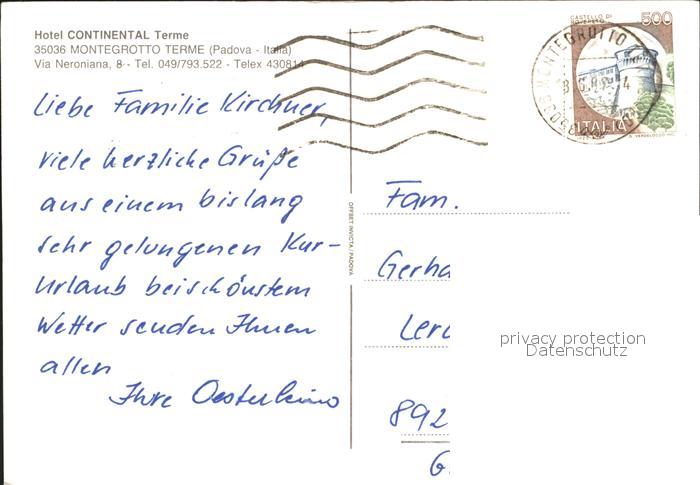 Hotel CONTINENTAL Terme
35036 MONTEGROTTO TERME (Padova - Italia)
Via Neroniana, 8 - Tel. 049/793.522 - Telex 430814
Liebe Familie Kirchner,
viele herzliche Grüße
aus einem bislang
sehr gelungenen Kur-
Urlaub bei schönstem
Wetter senden Ihnen
allen
Ihre
OFFSET INVICTA / PADOVA
CASTELLO DI
500
ITALIA
MONTEGROTTO
Fam.
Gerha
Lerc
892
G
privacy protection
Datenschutz